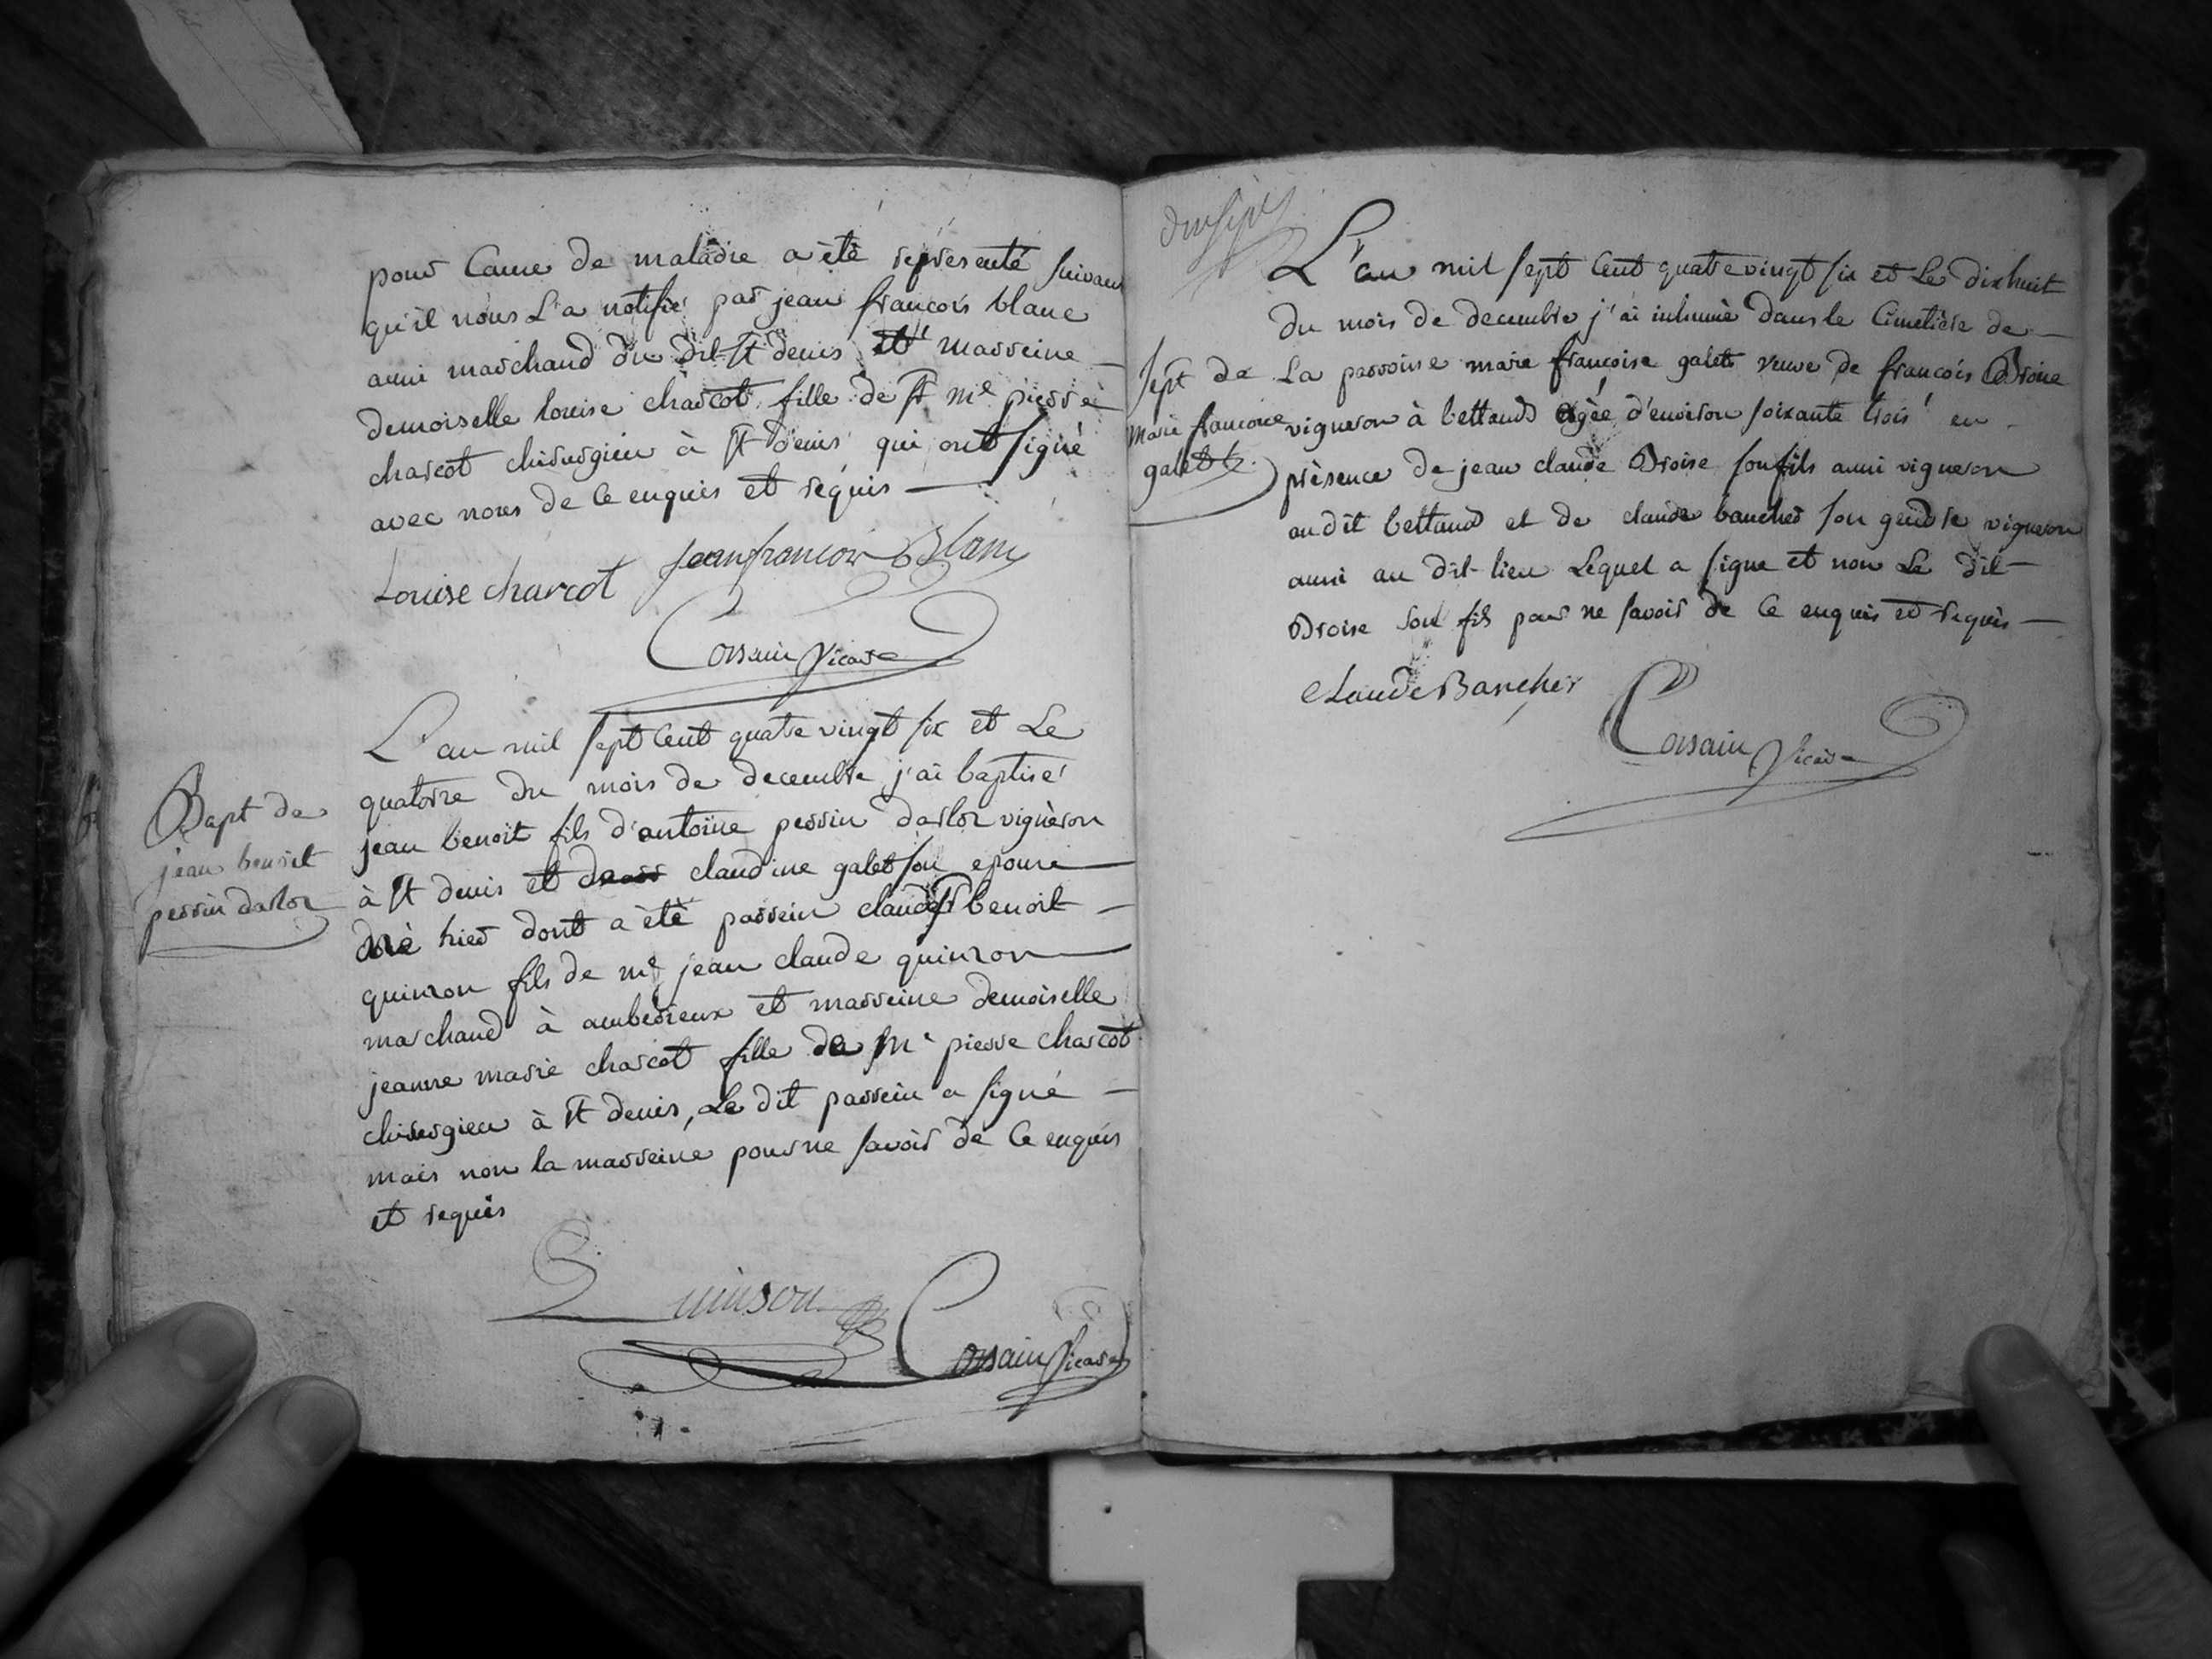 pour Cause de maladie a èté représenté suivant
qu'il nous L'a notifié par jean francois blanc
aussi marchand du dit St denis et marreine
demoiselle louise charcot fille de St me pierre
charcot chirurgien à St denis qui ont signé
avec nous de Ce enquis et réquis
Louise charcot jeanfrancois Blanc
Corsain Vicaire
L'an mil sept Cent quatre vingt six et Le
quatorze du mois de decembre j'ai baptisé
Bapt de
jean benoit
perrin darloz
jean benoit fils d'antoine perrin darloz vigneron
à St denis et claudine galet son epouse
né hier dont a èté parrein claude benoit
quinson fils de me jean claude quinson
marchand à amberieux et marreine demoiselle
jeanne marie charcot fille de me pierre charcot
chirurgien à St denis, Le dit parrein a signé
mais non la marreine pour ne savoir de Ce enquis
et requis
Quinson Corsain Vicaire
L'an mil sept Cent quatre vingt six et Le dixhuit
du mois de decembre j'ai inhumè dans le Cimetière de
Sept de
Marie francoise
galet
La parroisse marie francoise galet veuve de francois Broise
vigneron à bettand agée d'environ soixante trois en
prèsence de jean claude Broise son fils aussi vigneron
au dit bettand et de claude baucher son gendre vigneron
aussi au dit lieu Lequel a signe et non Le dit
Broise son fils pour ne savoir de Ce enquis et requis
Claude Baucher
Corsain Vicaire